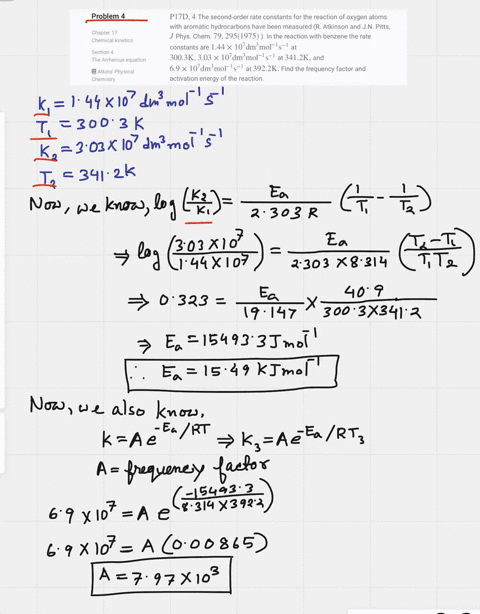 Problem 4
Chapter 17
Chemical kinetics
Section 4
The Arrhenius equation
Atkins' Physical
Chemistry
P17D, 4 The second-order rate constants for the reaction of oxygen atoms
with aromatic hydrocarbons have been measured (R. Atkinson and J.N. Pitts,
J Phys. Chem. 79, 295(1975) ). In the reaction with benzene the rate
constants are 1.44 × 10⁷dm³mol⁻¹s⁻¹ at
300.3K, 3.03 × 10⁷dm³mol⁻¹s⁻¹ at 341.2K, and
6.9 × 10⁷dm³mol⁻¹s⁻¹ at 392.2K. Find the frequency factor and
activation energy of the reaction.
K₁ = 1.44 × 10⁷ dm³ mol⁻¹ s⁻¹
T₁ = 300.3 K
K₂ = 3.03 × 10⁷ dm³ mol⁻¹ s⁻¹
T₂ = 341.2K
Now, we know, log (K₂/K₁) = Ea/2.303 R (1/T₁ - 1/T₂)
⇒ log (3.03 × 10⁷/1.44 × 10⁷) = Ea/2.303 × 8.314 (T₂-T₁/T₁T₂)
⇒ 0.323 = Ea/19.147 × 40.9/300.3 × 341.2
⇒ Ea = 15493.3 J mol⁻¹
∴ Ea = 15.49 kJ mol⁻¹
Now, we also know,
k = A e^-Ea/RT ⇒ K₃ = A e^-Ea/RT₃
A = frequency factor
6.9 × 10⁷ = A e^(-15493.3/8.314 × 392.2)
6.9 × 10⁷ = A (0.00865)
A = 7.97 × 10³